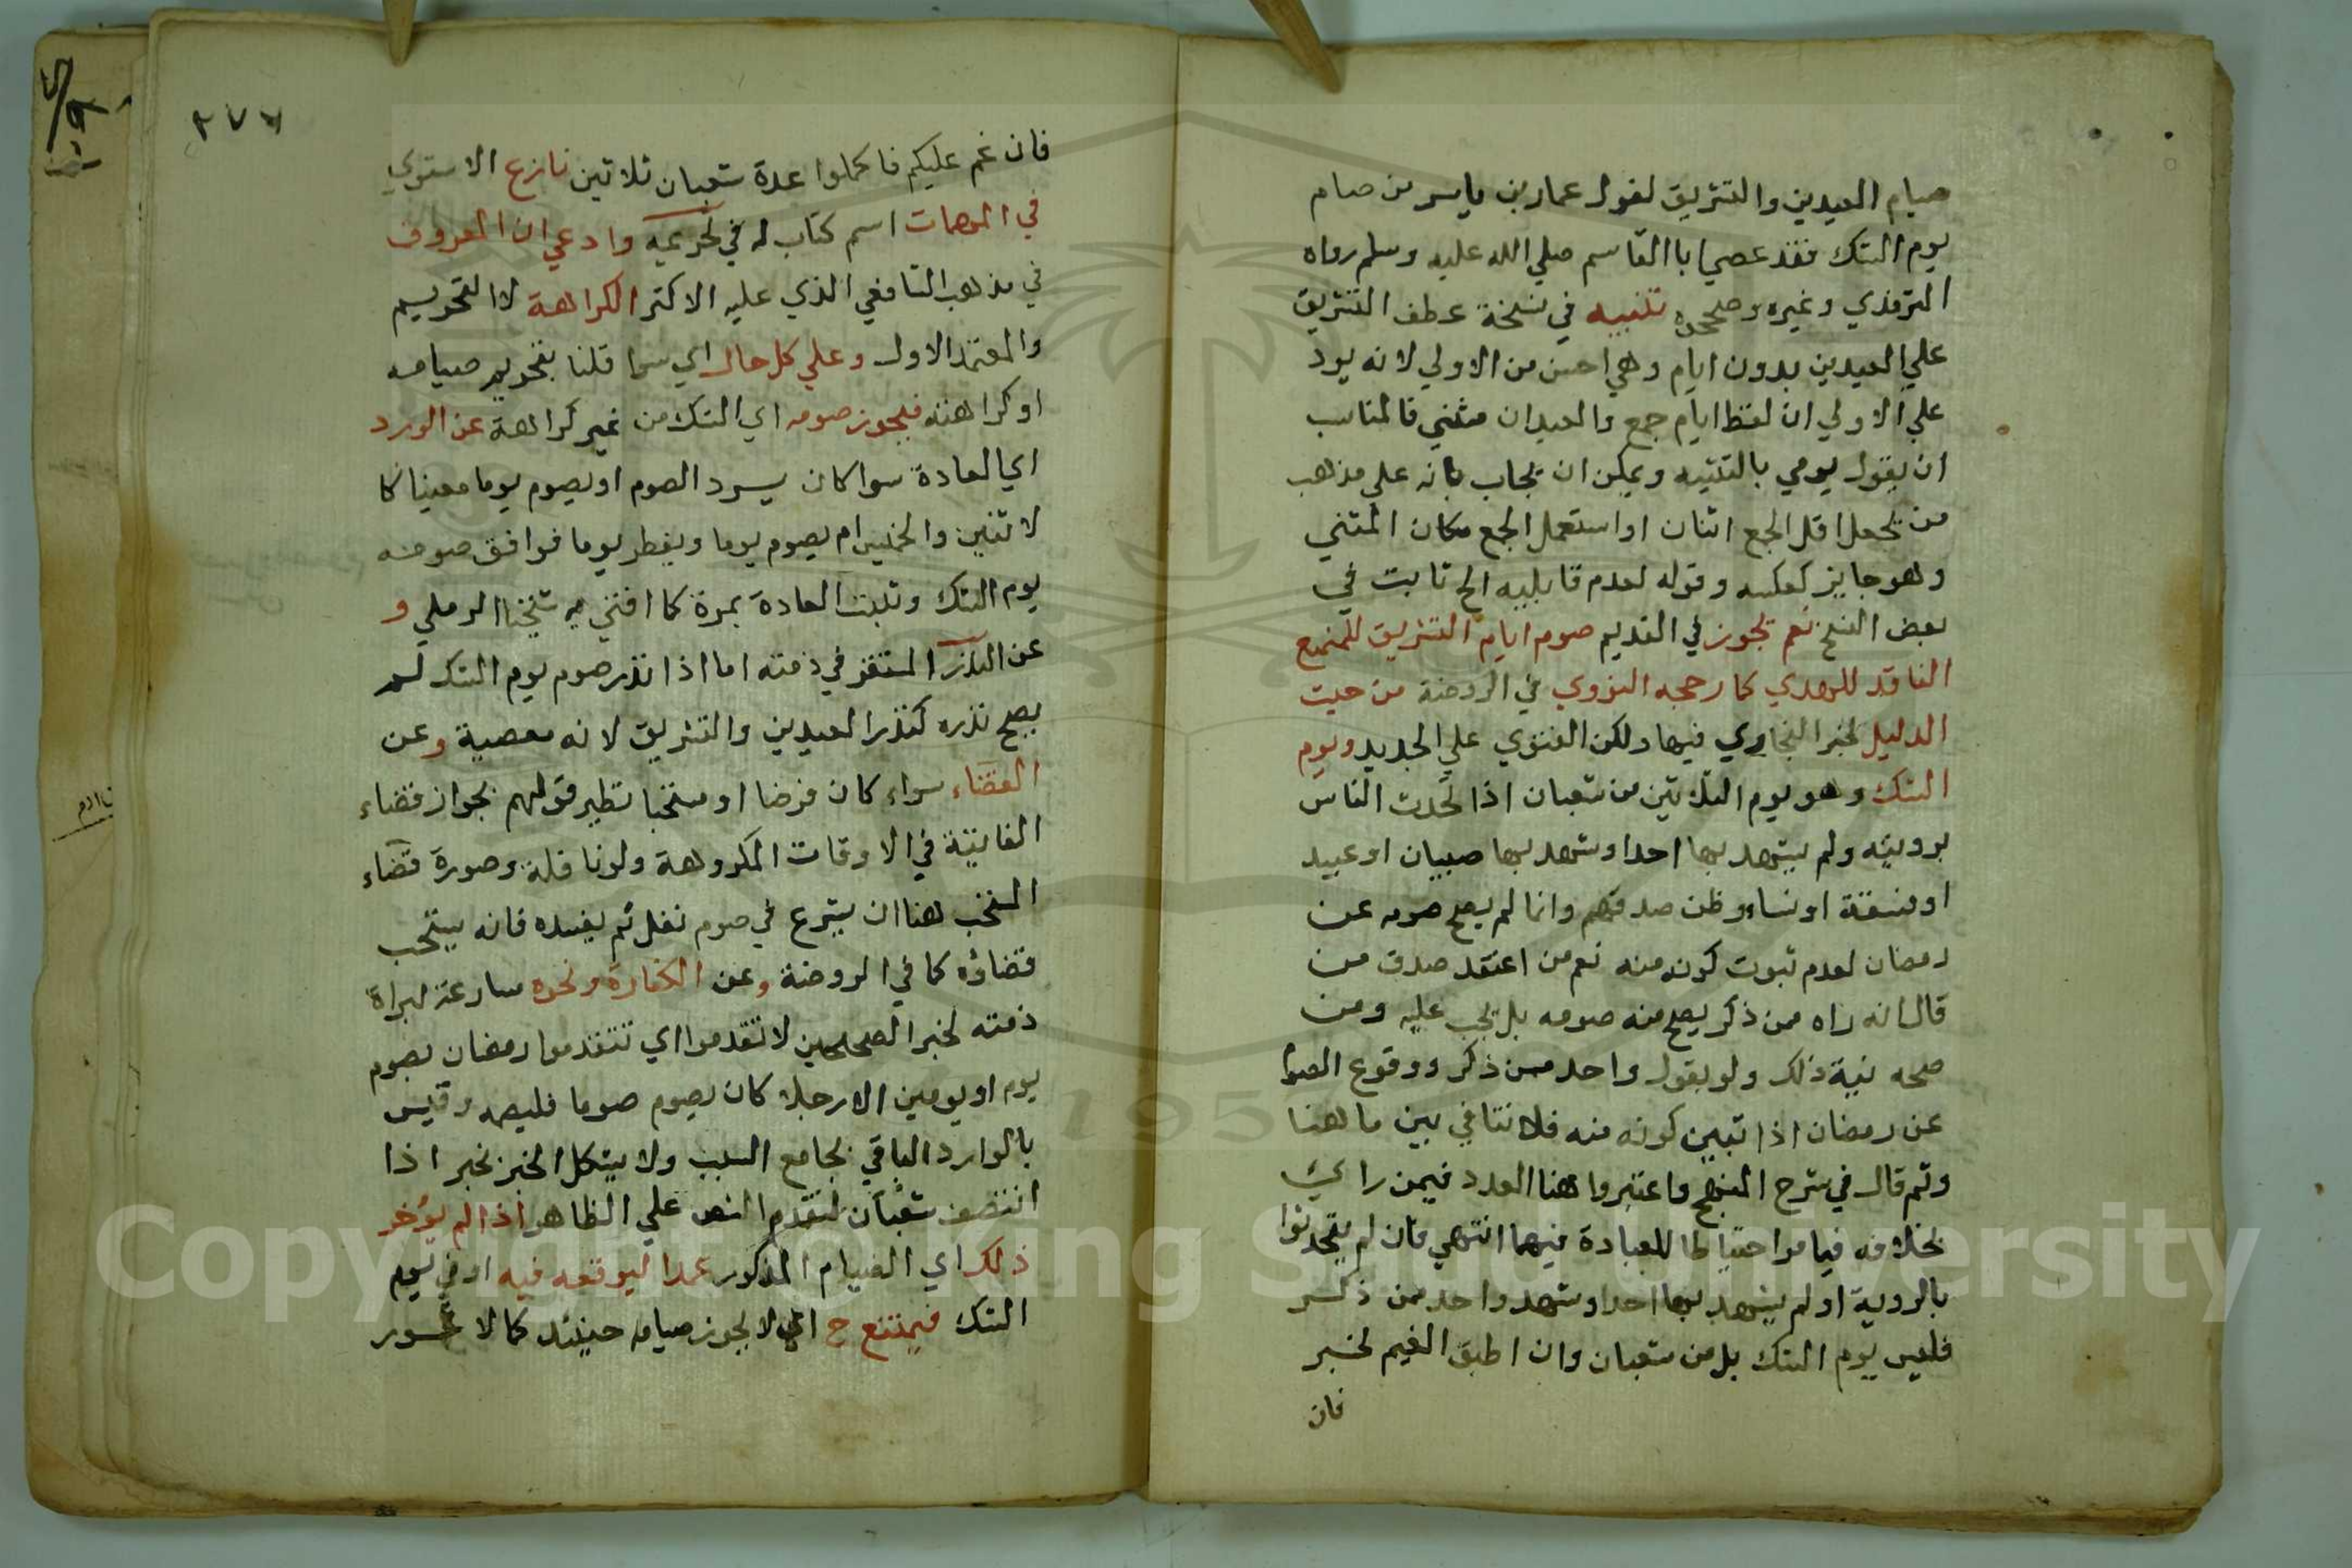 صيام العيدين والتشريق لقول عمار بن ياسر من صام
يوم الشك فقد عصي ابا القاسم صلي الله عليه وسلم رواه
الترمذي وغيره وصححوه تنبيه في نسخة عطف التشريق
علي العيدين بدون ايام وهي احسن من الاولي لانه يرد
علي الاولي ان لفظ ايام جمع والعيدان مثني فالمناسب
ان يقول يومي بالتثنيه ويمكن ان يجاب بانه علي مذهب
من يجعل اقل الجمع اثنان او استعمل الجمع مكان المثني
وهو جايز كعكسه وقوله لعدم قابليه الخ ثابت في
بعض النسخ نعم يجوز في القديم صوم ايام التشريق للمتمتع
الفاقد للهدي كما رجحه النووي في الروضة من حيث
الدليل لخبر البخاري فيها ولكن الفتوي علي الجديد ويوم
الشك وهو يوم الثلاثين من شعبان اذا تحدث الناس
برويته ولم يشهد بها احد او شهد بها صبيان او عبيد
او فسقة او نساء وظن صدقهم وانما لم يصح صومه عن
رمضان لعدم ثبوت كونه منه نعم من اعتقد صدق من
قال انه راه ممن ذكر يصح منه صومه بل يجب عليه ومن
صحه نية ذلك ولو بقول واحد ممن ذكر ووقوع الصوم
عن رمضان اذا تبين كونه منه فلا تنافي بين ما هنا
وثم قال في شرح المنهج واعتبروا هنا العدد فيمن راي
بخلافه فيما مر احتياطا للعبادة فيهما انتهي فان لم يتحدثوا
بالروية او لم يشهد بها احد او شهد واحد ممن ذكر
فليس يوم الشك بل من شعبان وان اطبق الغيم لخبر
فان
٢٧٦
فان غم عليكم فاكملوا عدة شعبان ثلاثين نازع الاسنوي
في المهمات اسم كتاب له في تحريمه وادعي ان المعروف
في مذهب الشافعي الذي عليه الاكثر الكراهة لا التحريم
والمعتمد الاول وعلي كل حال اي سوا قلنا بتحريم صيامه
او كراهته فيجوز صومه اي الشك من غير كراهة عن الورد
اي العادة سوا كان يسرد الصوم او يصوم يوما معينا كا
لاثنين والخميس ام يصوم يوما ويفطر يوما فوافق صومه
يوم الشك وتثبت العادة بمرة كما افتي به شيخنا الرملي و
عن النذر المستقر في ذمته اما اذا نذر صوم يوم الشك لم
يصح نذره كنذر العيدين والتشريق لانه معصية وعن
القضاء سواء كان فرضا او مستحبا نظير قولهم بجواز قضاء
الفائتة في الاوقات المكروهة ولو نافلة وصورة قضاء
المستحب هنا ان يشرع في صوم نفل ثم يفسده فانه يستحب
قضاؤه كما في الروضة وعن الكفارة ونحوه مسارعة لبراة
ذمته لخبر الصحيحين لا تقدموا اي تتقدموا رمضان بصوم
يوم او يومين الا رجلا كان يصوم صوما فليصمه وقيس
بالوارد الباقي بجامع السبب ولا يشكل الخبر بخبر اذا
انتصف شعبان لتقدم النص علي الظاهر اذا لم يؤخر
ذلك اي الصيام المذكور عمدا ليوقعه فيه او في يوم
الشك فيمتنع ح اي لا يجوز صيامه حينئذ كما لا يجوز
Copyright © King Saud University